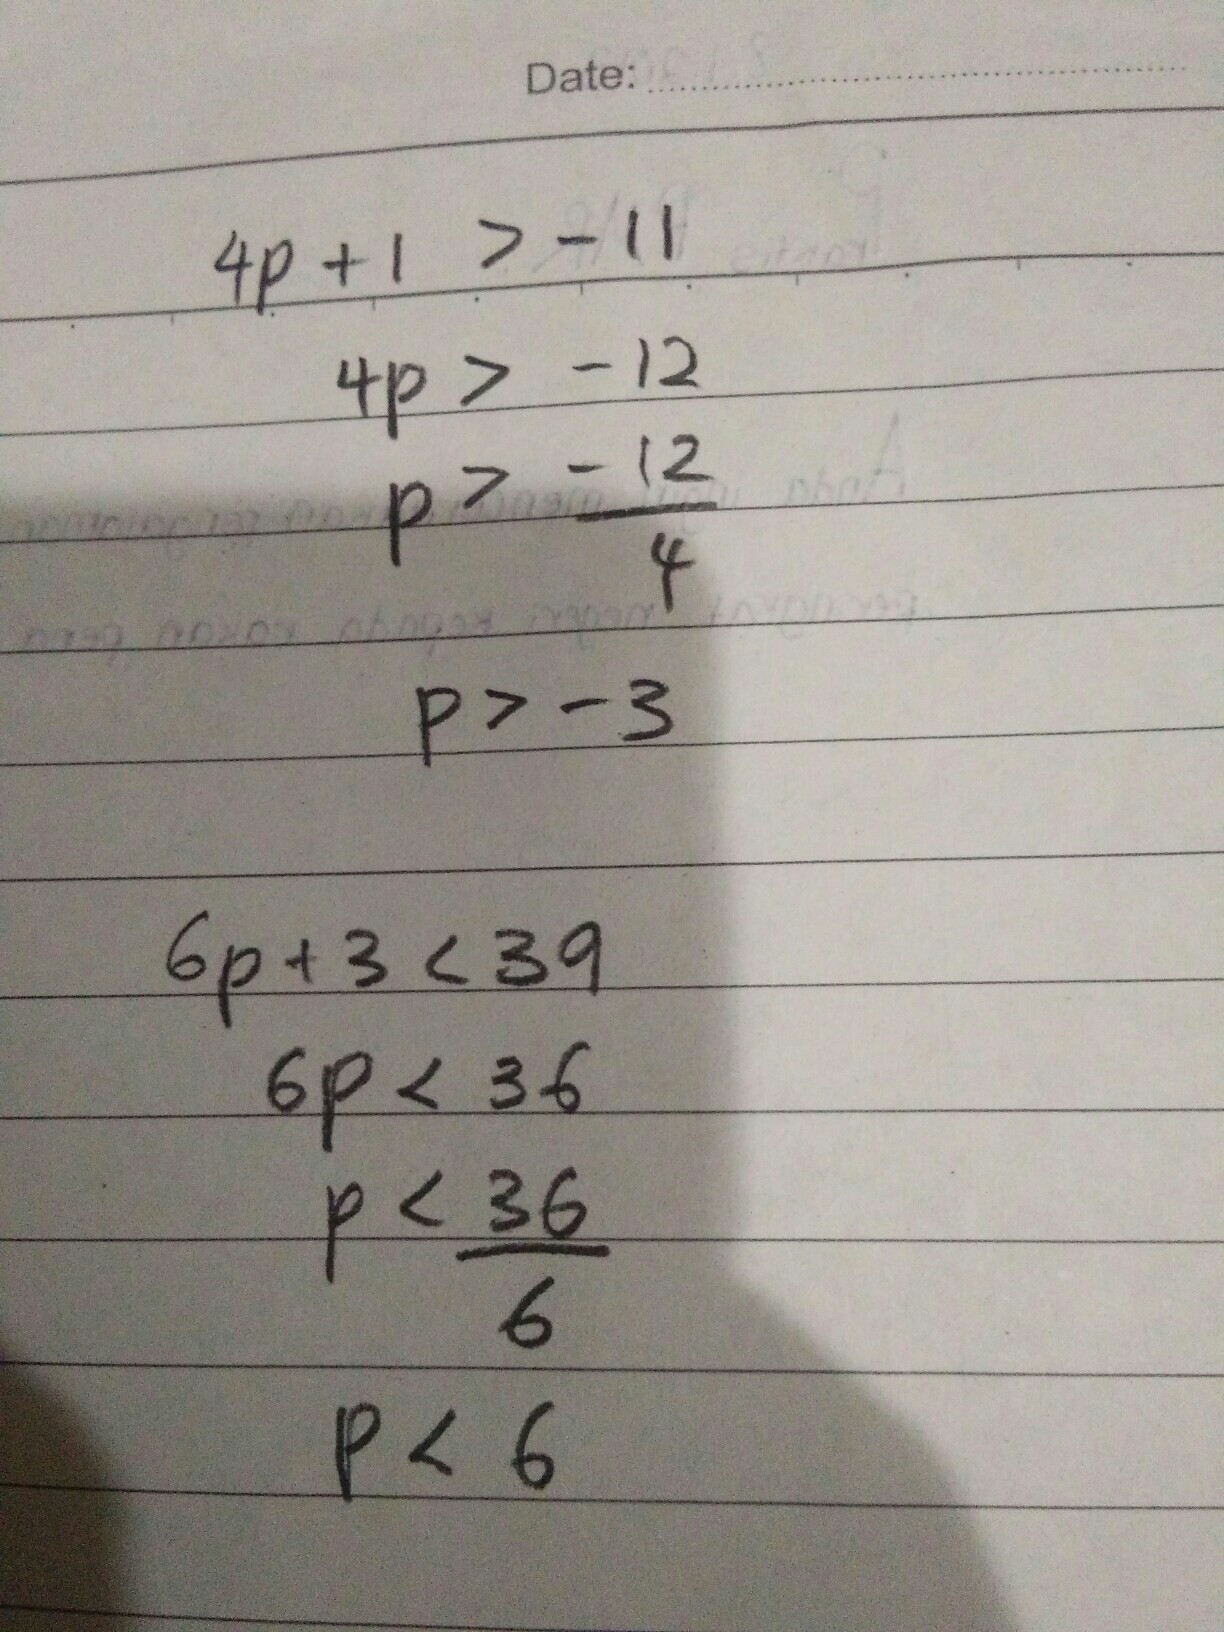 Date:
4p + 1 > -11
4p > -12
p > -12/4
p > -3
6p + 3 < 39
6p < 36
p < 36/6
p < 6